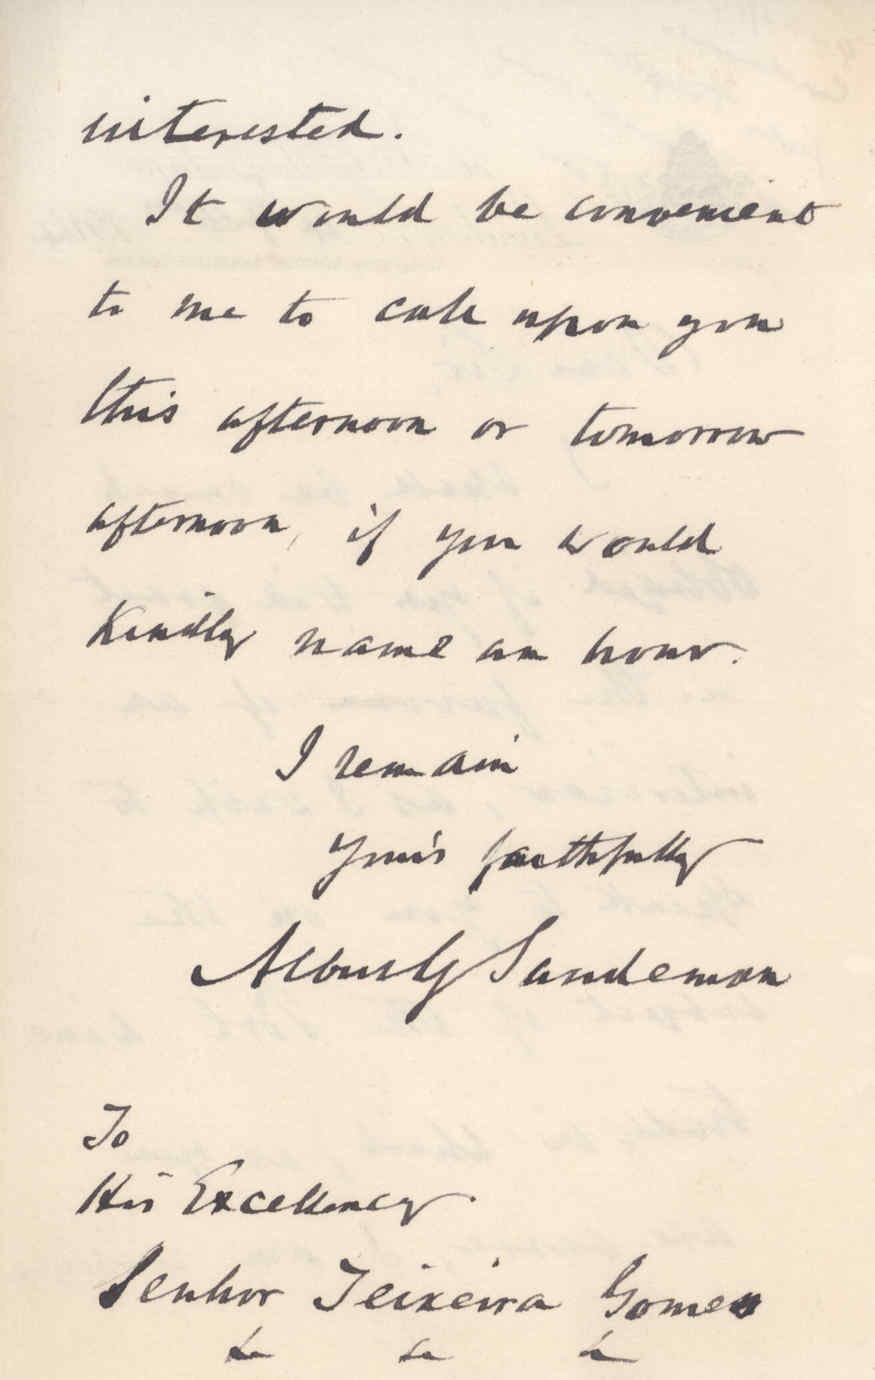 interested.
It would be convenient
to me to call upon you
this afternoon or tomorrow
afternoon, if you would
kindly name an hour.
I remain
Yours faithfully
Albert G Sandeman
To
His Excellency
Senhor Teixeira Gomes
&c &c &c